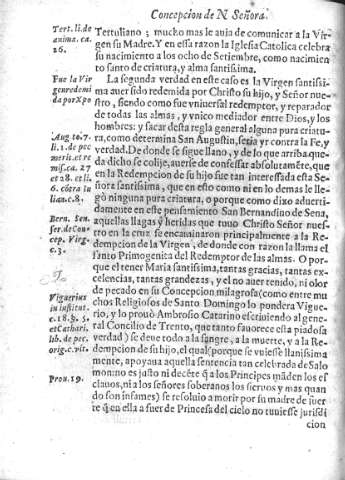 Concepcion de N Señora.
Tert. li. de anima. ca. 26.
Tertuliano; mucho mas le auia de comunicar a la Virgen
su Madre. Y en esta razon la Iglesia Catolica celebra
su nacimiento a los ocho de Setiembre, como nacimien
to santo de criatura, y alma santissima.
Fue la Vir
gen redemi
da por Xpo
La segunda verdad en este caso es la Virgen santissi
ma auer sido redemida por Christo su hijo, y Señor nue
stro, siendo como fue vniuersal redemptor, y reparador
de todas las almas, y vnico mediator entre Dios, y los
hombres: y sacar desta regla general alguna pura criatu
Aug. to. 7.
li. 1. de pec
merit. et re
miss. ca. 27
et 28. et li.
6. cõtra Iu
lian. c. 8.
ra, como determina San Augustin, seria yr contra la Fe, y
verdad. De donde se sigue llano, y de lo que arriba que-
da dicho se colije, auerse de confessar absolutamẽte, que
en la Redempcion de su hijo fue tan interessada esta Se
ñora santissima, que en esto como ni en lo demas le lle-
gò ninguna pura criatura, o porque como dixo aduerti-
damente en este pensamiento San Bernandino de Sena,
Bern. Sen-
ser. de Con
cep. Virg.
c. 3.
aquellas llagas y heridas que tuuo Christo Señor nues-
tro en la cruz se encaminaron principalmente a la Re-
dempcion de la Virgen, de donde con razon la llama el
santo Primogenita del Redemptor de las almas. O por-
que el tener Maria santissima, tantas gracias, tantas ex-
celencias, tantas grandezas, y el no auer tenido, ni olor
de pecado en su Concepcion milagrosa (como entre mu
Viguerius
in institut.
c. 18. §. 5.
et Cathari.
lib. de pec.
orig. c. vlt.
chos Religiosos de Santo Domingo lo pondera Vigue-
rio, y lo prouò Ambrosio Catarino escriuiendo al gene-
ral Concilio de Trento, que tanto fauorece esta piadosa
verdad) se deue todo a la sangre, a la muerte, y a la Re-
dempcion de su hijo, el qual porque se vuiesse llanissima
mente, apoyaua aquella sentencia tan celebrada de Salo
Prou. 19.
mon: no es justo ni decẽte q̃ a los Principes mãden los es
clauos, ni a los señores soberanos los sieruos y mas quan
do son infames) se resoluio a morir por su madre de suer
te q̃ en ella a fuer de Princesa del cielo no tuuiesse jurisdi
cion